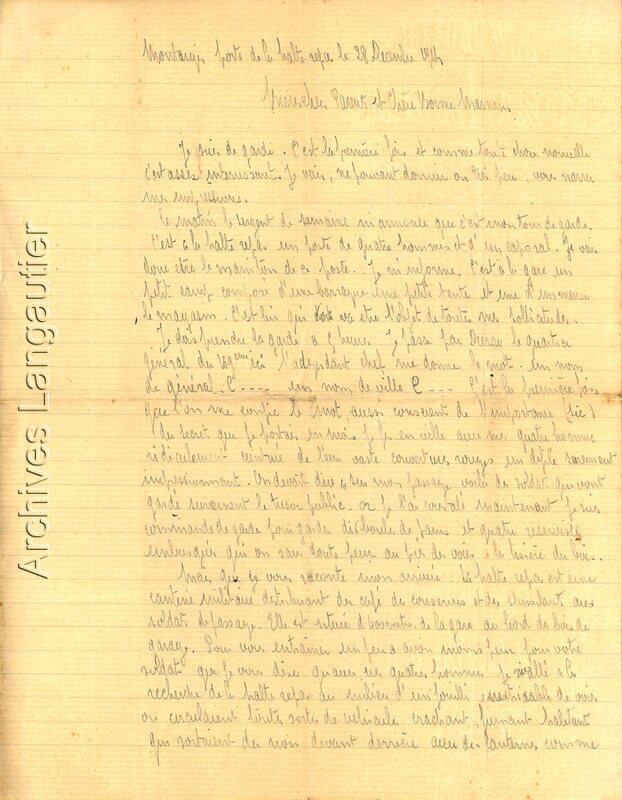 Montargis poste de la halte repas le 28 Decembre 1914
Très chers Parents et Chère Bonne Maman
Je suis de garde. C'est la première fois et comme toute chose nouvelle
c'est assez interessant. Je vais, ne pouvant donner on très peu, vous narrer
mes impressions.
Ce matin le sergent de semaine m'annonce que c'est mon tour de garde.
C'est a la halte repas un poste de quatre hommes et d'un caporal. Je vais
donc etre le de ce poste. Je m'informe. C'est a la gare un
petit camp composé d'une barraque d'une petite tente et une d'immense
le magasin. C'est lui qui va etre l'objet de toute mes sollicitudes.
Je dois prendre la garde a 5 heures. Je passe par le quartier
général du 169eme l'adjudant chef me donne le mot. un nom
de général. C---- un nom de ville C--- C'est la première fois
que l'on me confie le mot aussi conscient de l'importance (sic)
du secret que je portais en moi je fis en ville avec mes quatre hommes
ridiculement ceinture de leur vaste couvertures rouges un défilé
impressionnant. On devait dire sur mon passage voila des soldats qui vont
garder surement le tresor public. or je l'ai constaté maintenant je suis
commande de garde pour garder dix boules de pains et quatre reservistes
embusqués qui on sans doute peur au près des voies a la lisière du bois.
Mais que je vous raconte mon arrivée. La halte repas est une
cantine militaire distribuant du café des conserves et des stimulants aux
soldats de passage. Elle est située de la gare au bord des voies de
garage. Pour vous entrainer un peu a avoir moins peur pour votre
soldat que je vous dise qu'avec mes quatre hommes je a la
recherche de la halte repas au milieu d'un fouilli inextricable de voies
ou circulaient toutes sortes de vehicule crachant, fumant
qui sortaient du noir devant derrière avec des lanternes comme
Archives Langautier